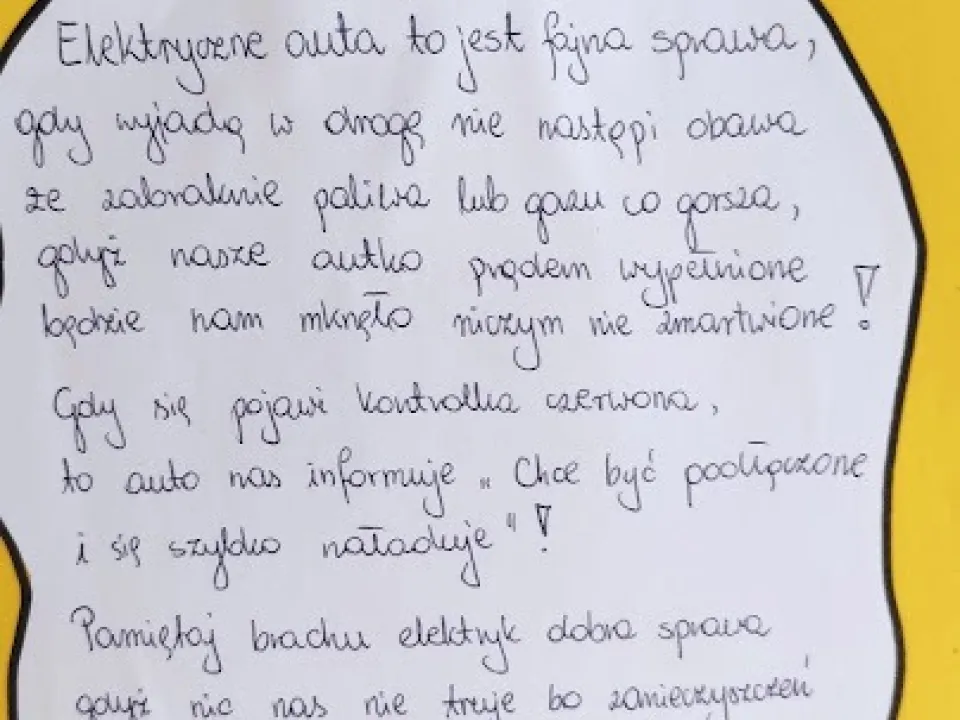 Elektryczne auta to jest fajna sprawa,
gdy wyjadą w drogę nie nastąpi obawa
że zabraknie paliwa lub gazu co gorsza,
gdyż nasze autko prądem wypełnione
będzie nam mknęło niczym nie zmartwione!
Gdy się pojawi kontrolka czerwona,
to auto nas informuje „Chce być podłączone
i się szybko naładuje"!
Pamiętaj brachu elektryk dobra sprawa
gdyż nic nas nie truje bo zanieczyszczeń